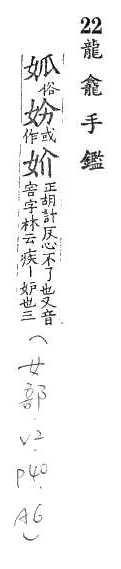 22龍龕手鑑
㚶俗妢或作妎正胡計反心不了也又音害字林云疾―妒也三
(女部.V2.P40.A6)